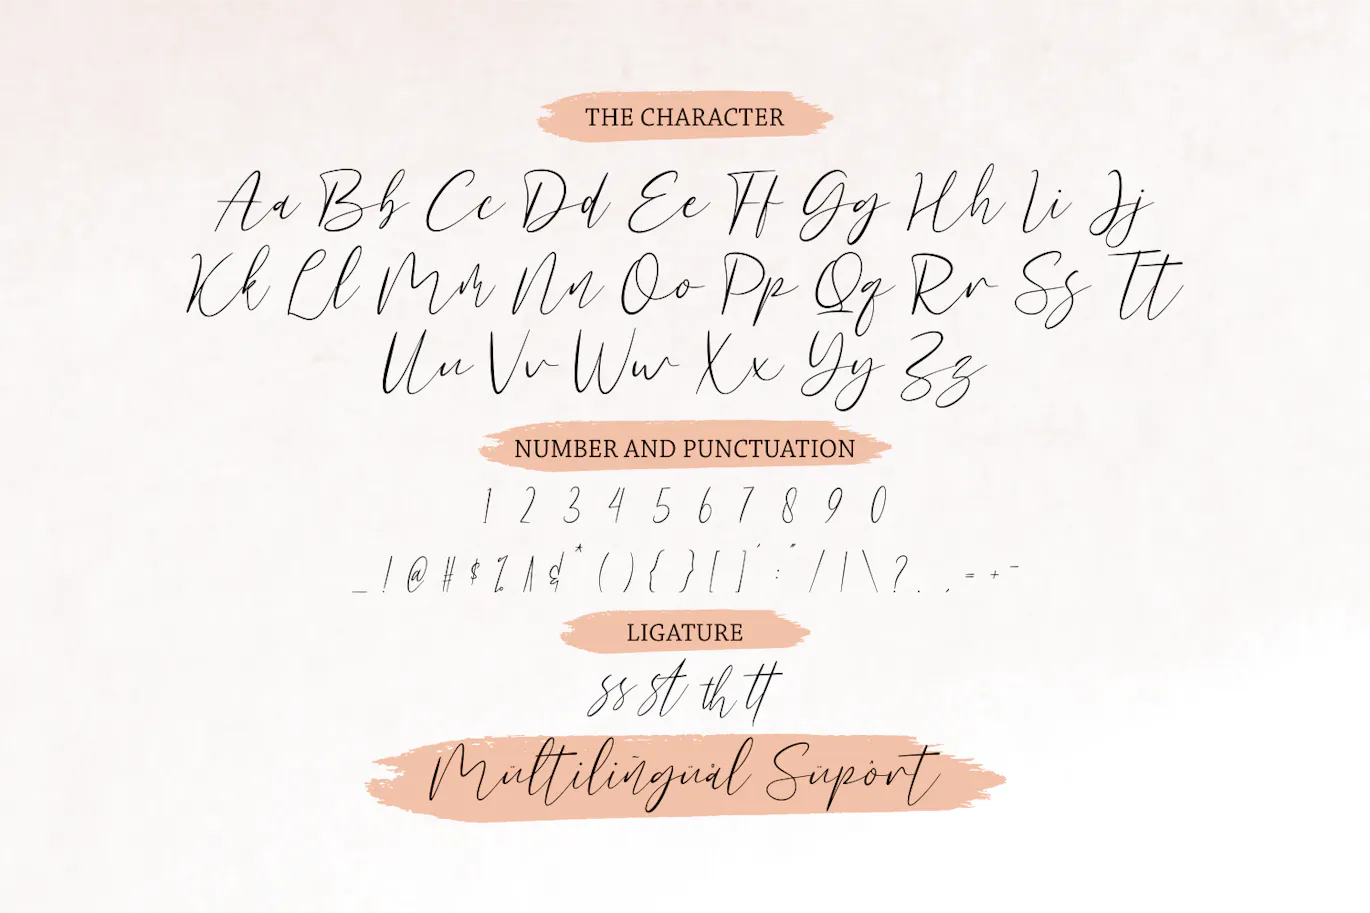 THE CHARACTER
Aa Bb Cc Dd Ee Ff Gg Hh Ii Jj
Kk Ll Mm Nn Oo Pp Qq Rr Ss Tt
Uu Vv Ww Xx Yy Zz
NUMBER AND PUNCTUATION
1 2 3 4 5 6 7 8 9 0
_ ! @ # $ % ^ & * ( ) { } [ ] ' : " / | \ ? . , = + -
LIGATURE
ss st th tt
Mültiliñgüål Süpórt